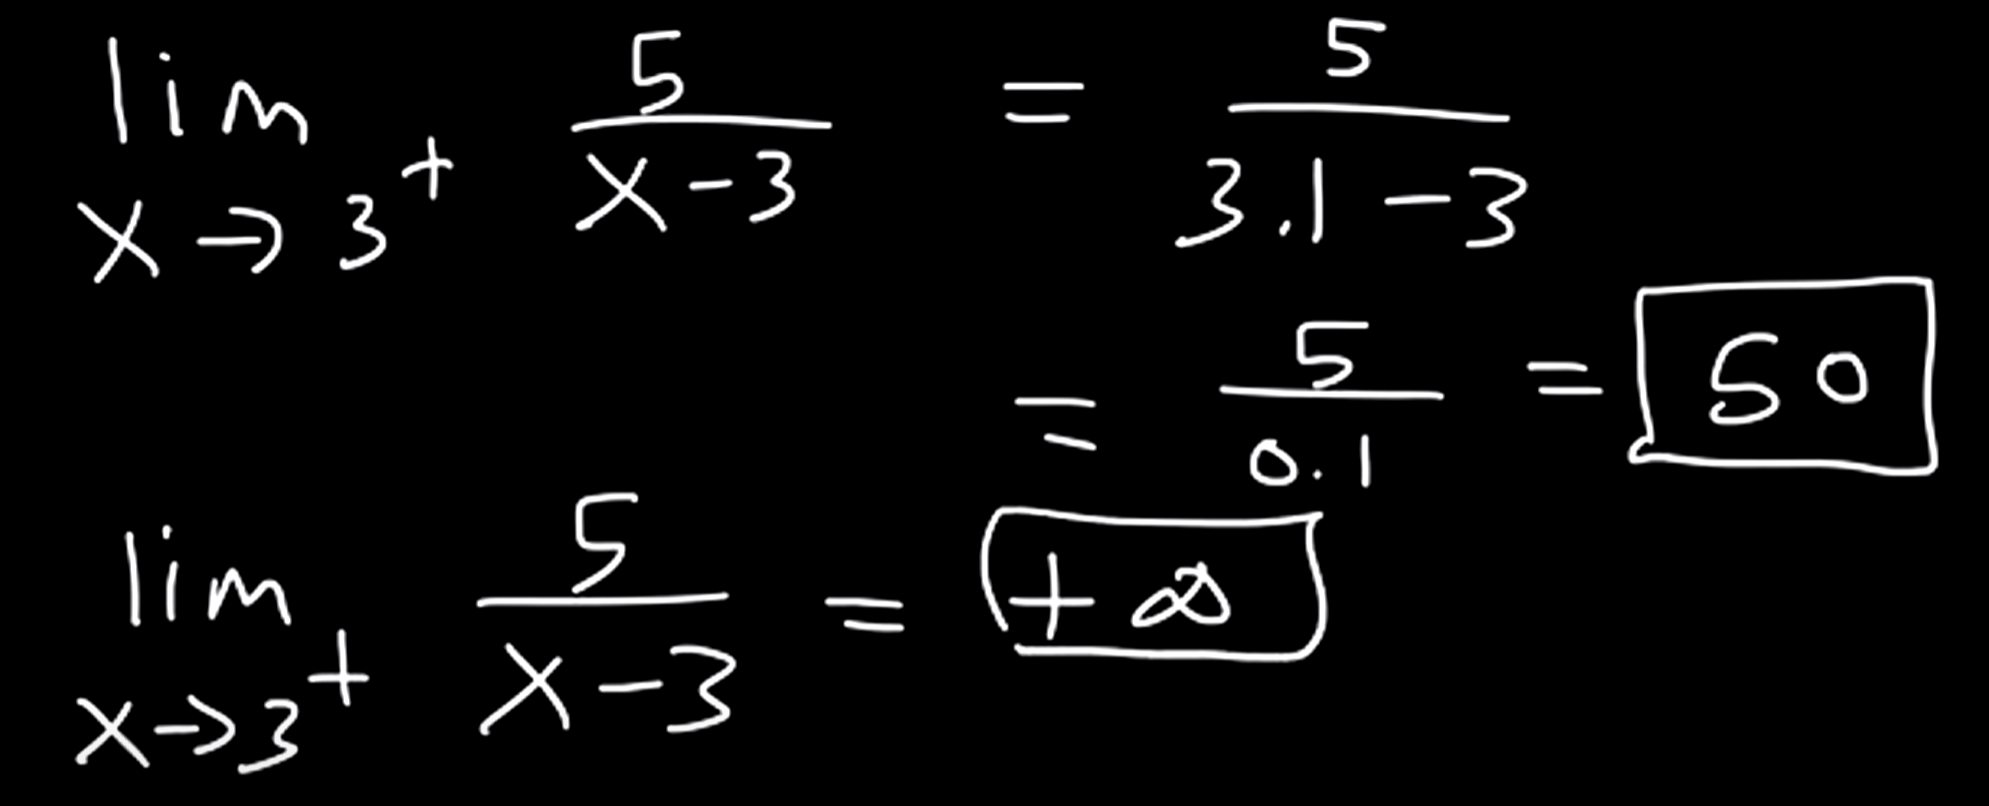 lim x→3⁺ 5/(x-3) = 5/(3.1-3)
= 5/0.1 = 50
lim x→3⁺ 5/(x-3) = +∞